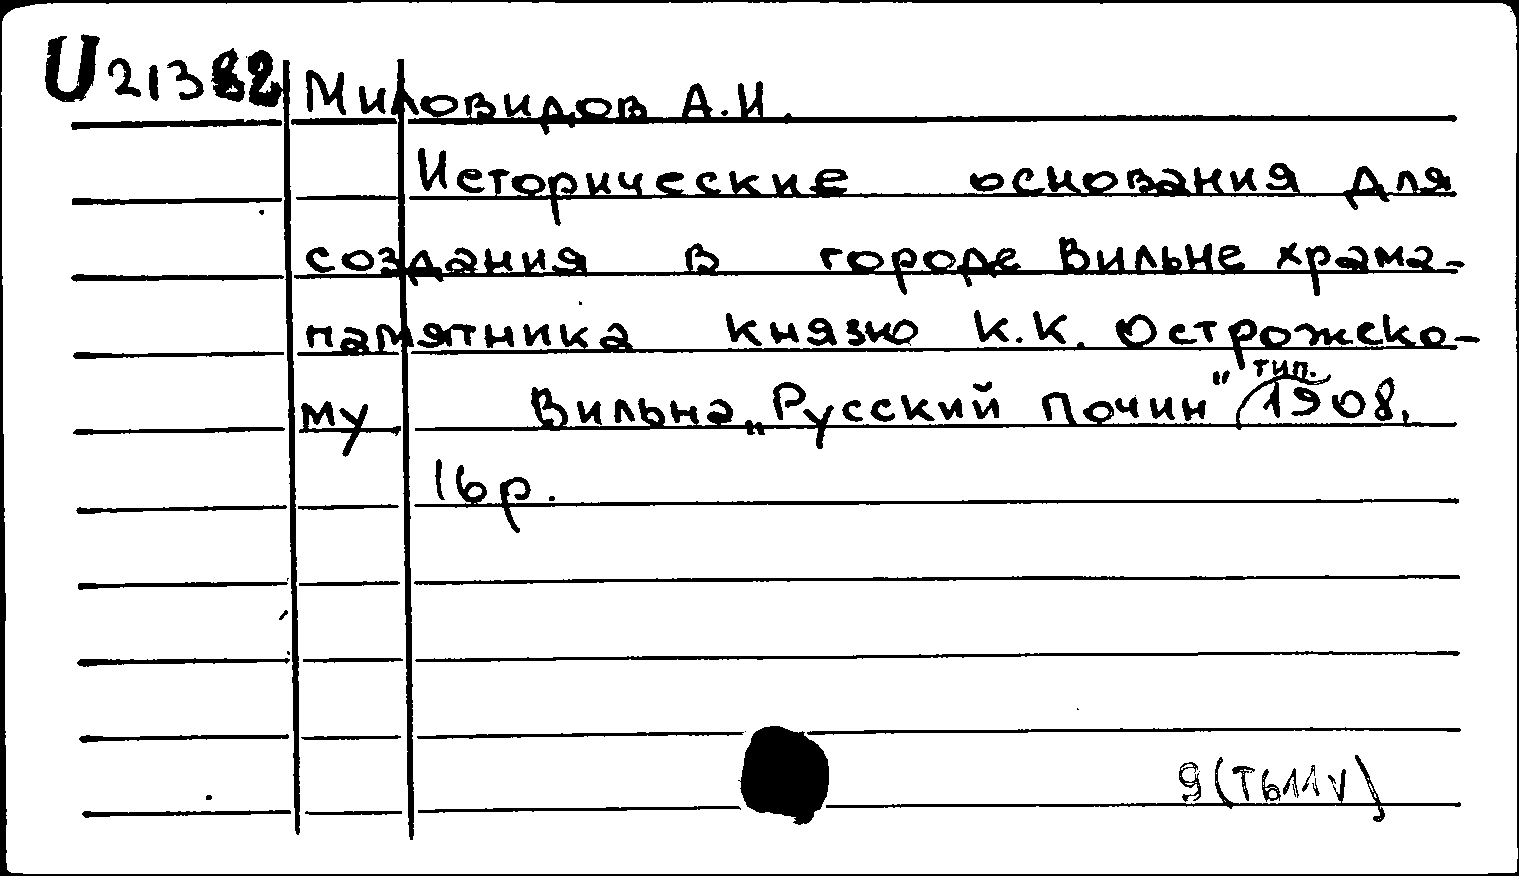 U21382 Миловидов А.И.
Исторические основания для
создания в городе Вильне храма-
памятника князю К.К. Острожско-
му. Вильна „Русский Почин" тип. 1908.
16 p.
9(Т611V)